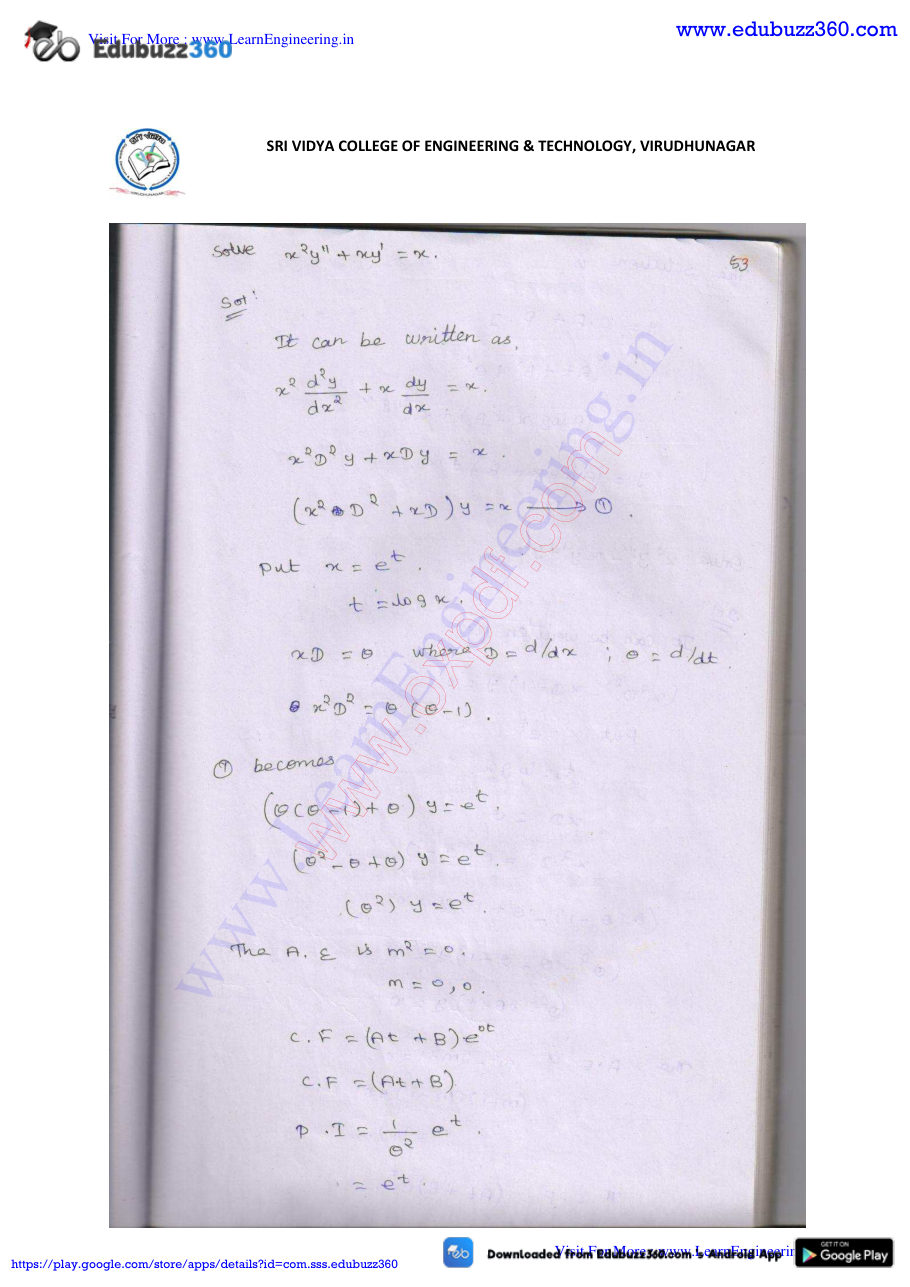 Visit For More : www.LearnEngineering.in
Edubuzz360
www.edubuzz360.com
SRI VIDYA COLLEGE OF ENGINEERING & TECHNOLOGY, VIRUDHUNAGAR
VIRUDHUNAGAR
53
Solve x²y'' + xy' = x.
Sol:
It can be written as,
x² d²y/dx² + x dy/dx = x.
x²D²y + xDy = x.
(x²D² + xD)y = x → ①.
put x = e^t.
t = log x.
xD = θ where D = d/dx ; θ = d/dt.
x²D² = θ(θ-1).
① becomes
(θ(θ-1)+θ) y = e^t.
(θ²-θ+θ) y = e^t.
(θ²) y = e^t.
The A.E is m² = 0.
m = 0, 0.
C.F = (At + B) e^0t
C.F = (At + B)
P.I = 1/θ² e^t.
= e^t.
www.LearnEngineering.in
www.oxpdf.com
https://play.google.com/store/apps/details?id=com.sss.edubuzz360
Downloaded from Edubuzz360.com's Android App
Visit For More : www.LearnEngineerin
GET IT ON
Google Play